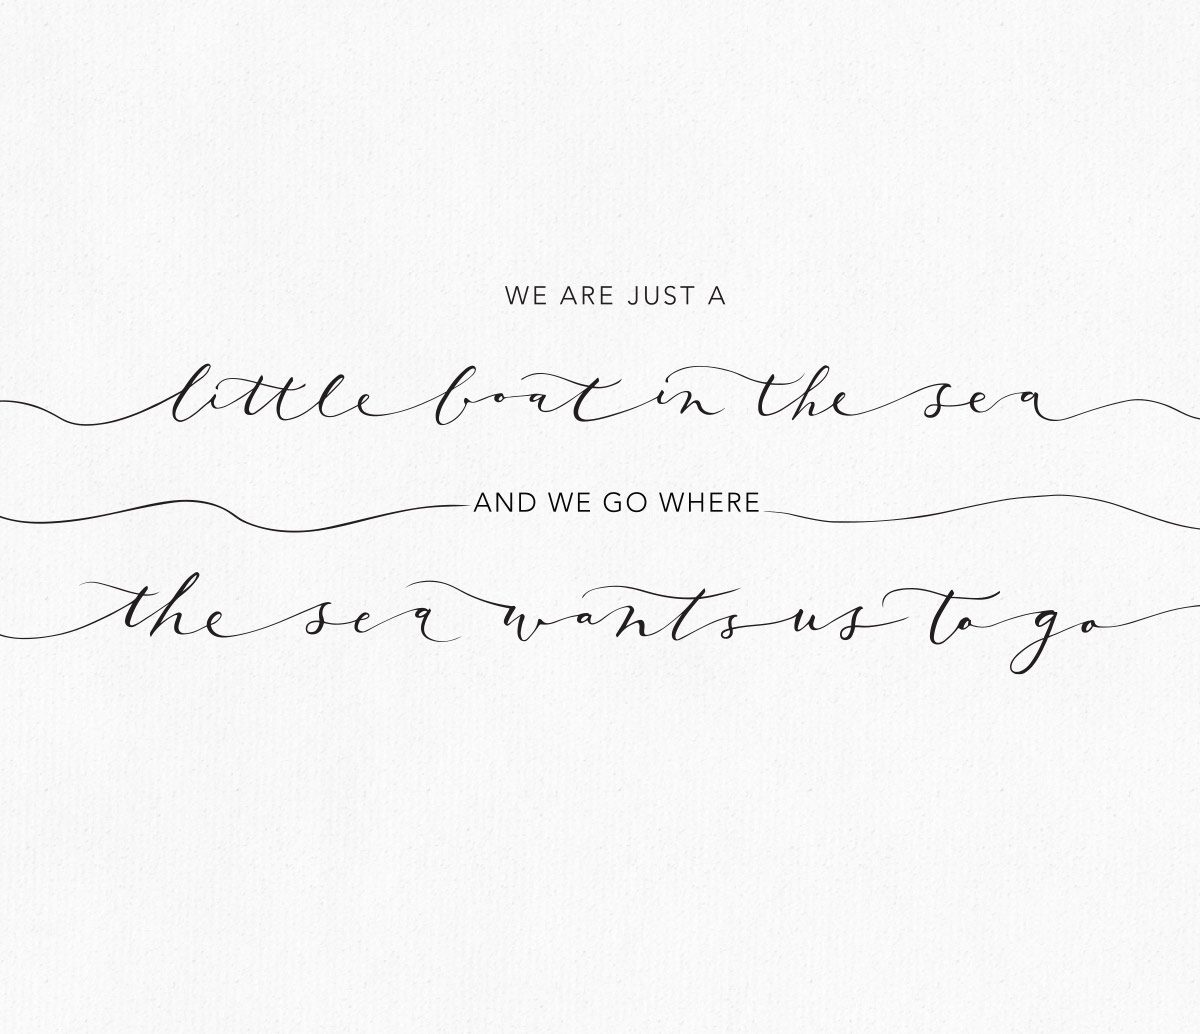 WE ARE JUST A
little boat in the sea
AND WE GO WHERE
the sea wants us to go